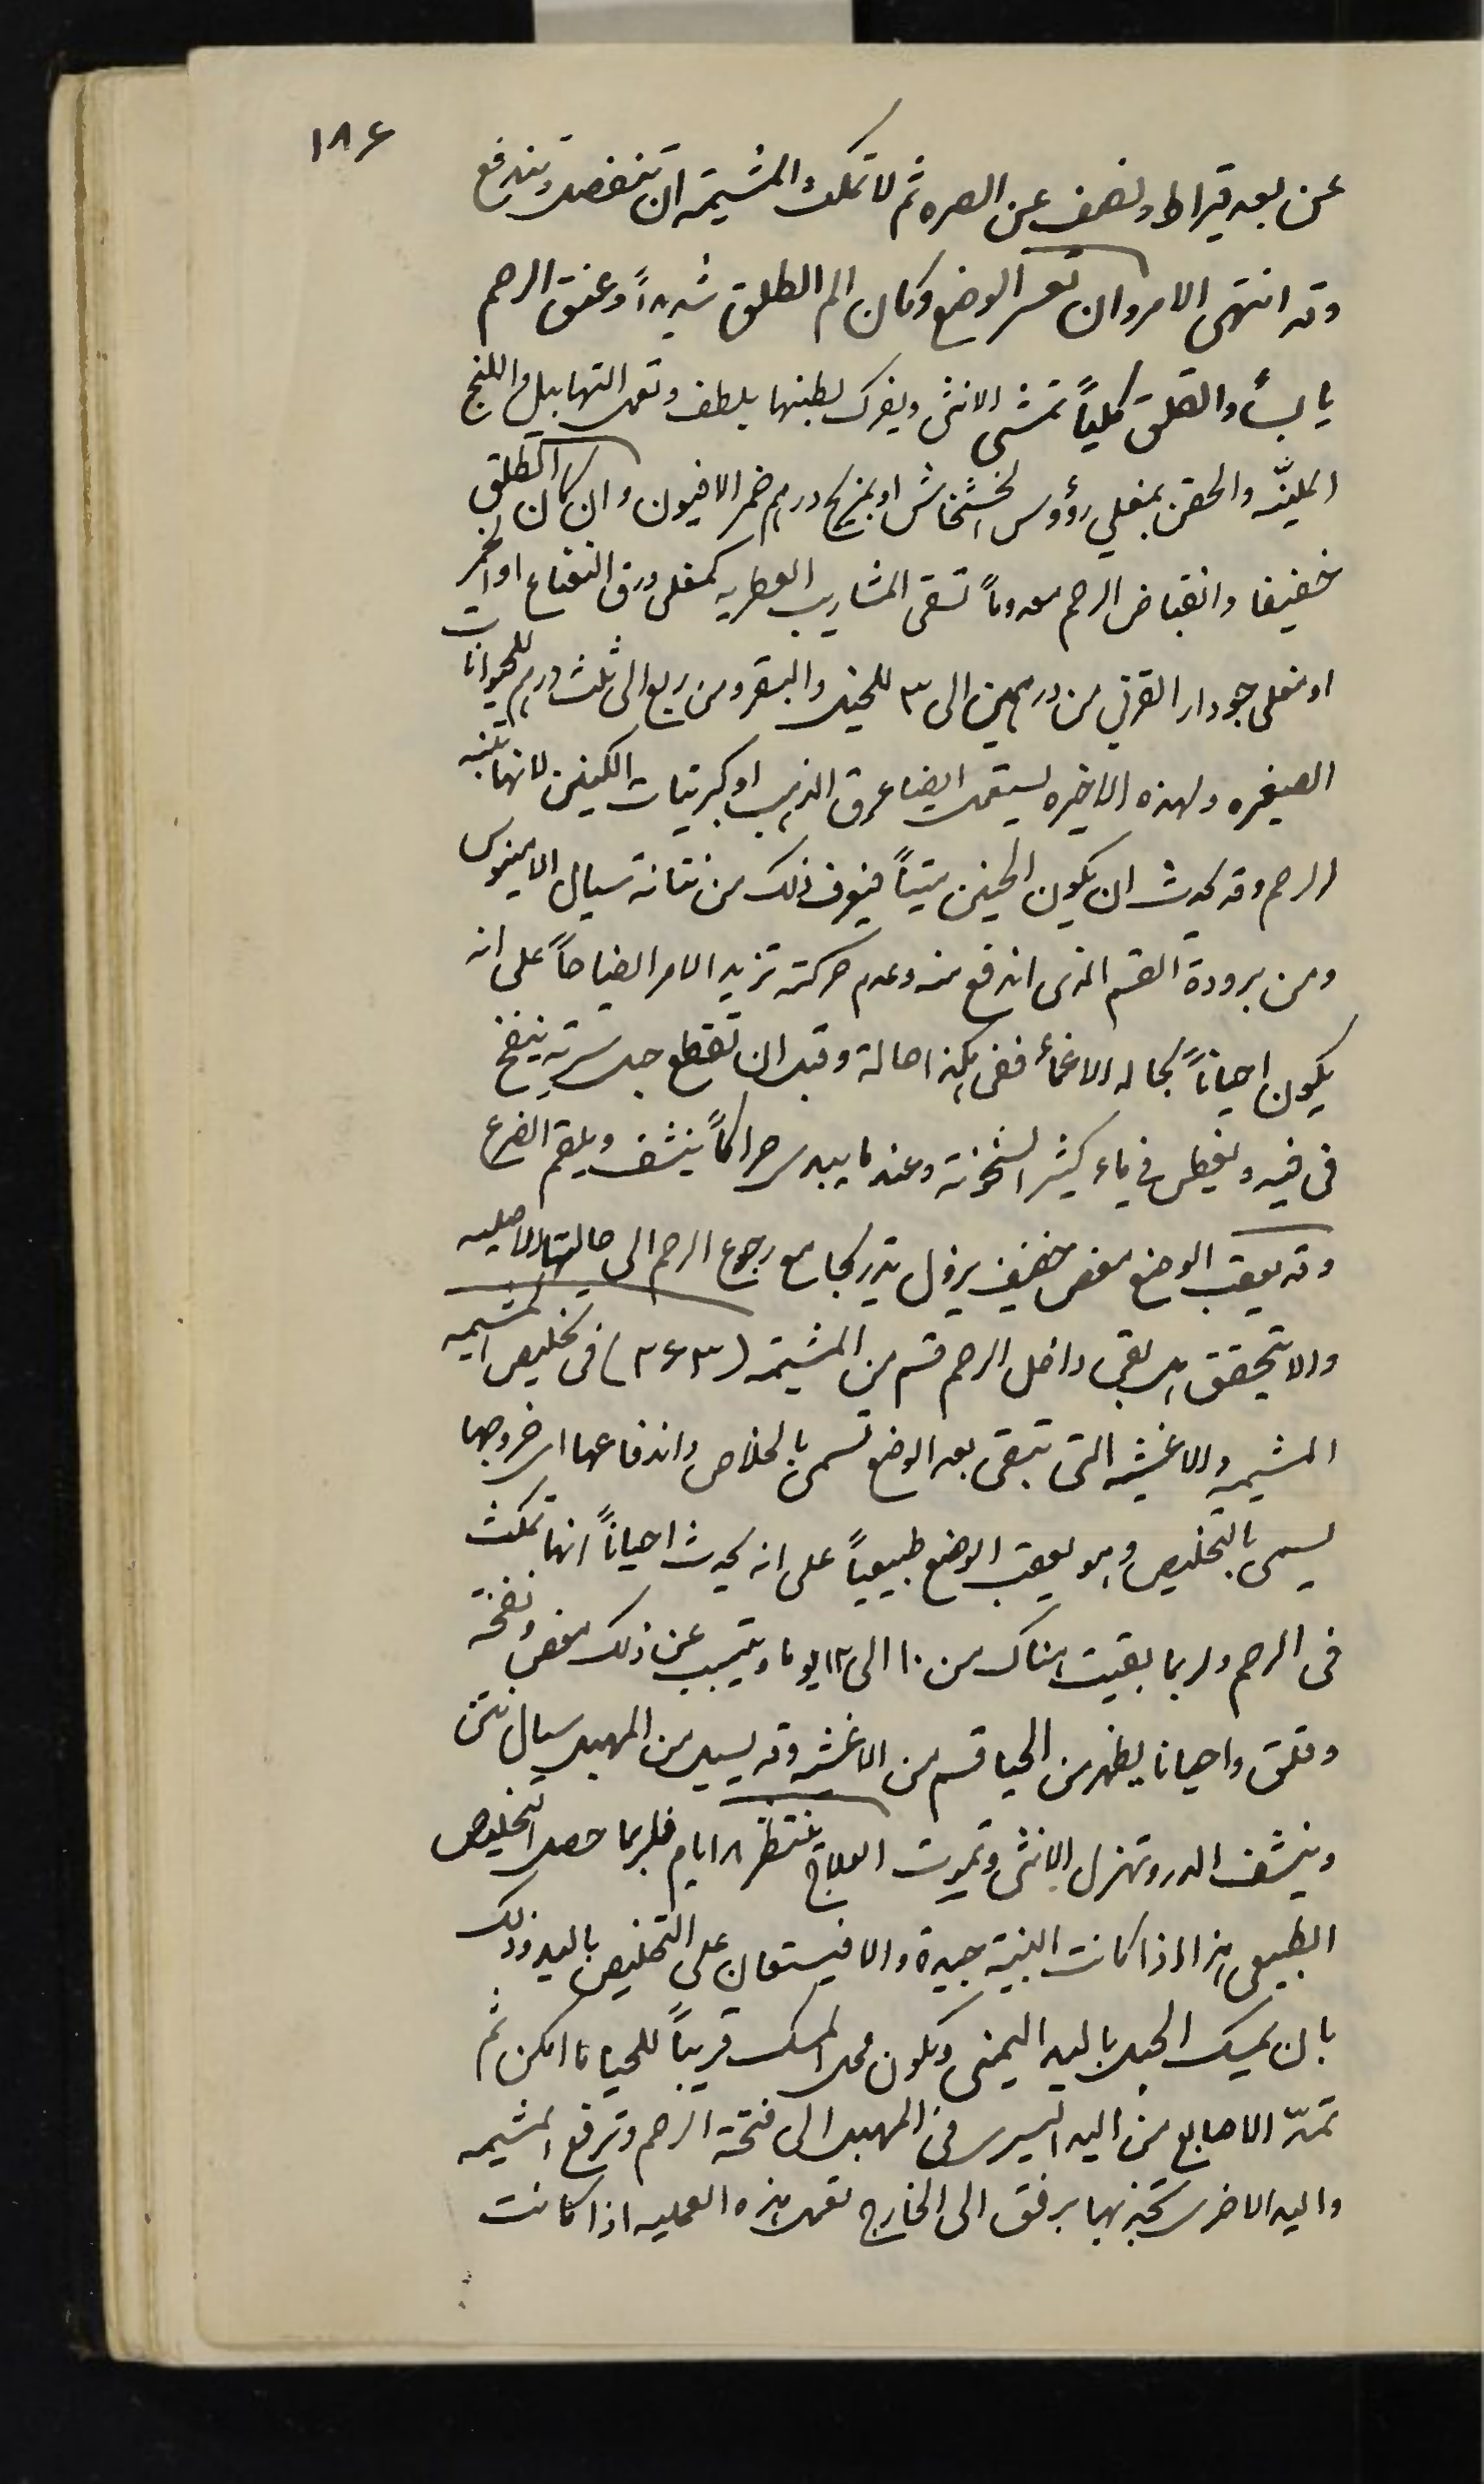 ١٨٤
عن بعد قيراط ونصف عن الصره ثم لا تمكث المشيمة ان تنفصل وتندفع
وقد انتهى الامر وان تعسر الوضع وكان الم الطلق شديداً وعنق الرحم
يابساً والقلق كلياً تمشى الانثى ويفرك بطنها بلطف وتعمل التهابيل واللبخ
المليّنه والحقن بمغلي رؤوس الخشخاش او بمزيج درهم خمر الافيون وان كان الطلق
خفيفا وانقباض الرحم معدوماً تسقى المشاريب العطريه كمغلى ورق النعناع او الخمر
او مغلى جودار القرني من درهمين الى ٣ للخيل والبقر ومن ربع الى ثلث درهم للحيوانات
الصغيره ولهذه الاخيره يستعمل ايضا عرق الذهب او كبريتات الكينين لانها تنبه
الرحم وقد يحدث ان يكون الجنين ميتاً فيعرف ذلك من نتانة سيال الامنيوس
ومن برودة القسم الذى اندفع منه وعدم حركته تزيد الامر ايضاحاً على انه
يكون احياناً بحاله الاغماء ففى هكذا حالة وقبل ان تقطع حبل سرته ينفخ
فى فيه ويغطس في ماء كثير السخونة وعندما يبدى حراكاً ينشف ويلقم الضرع
وقد يعقب الوضع مغص خفيف يزول تدريجا مع رجوع الرحم الى حالتها الاصليه
والا تتحقق هل بقى داخل الرحم قسم من المشيمة (٣٤٣) فى تخليص المشيمه
المشيمه والاغشيه التى تبقى بعد الوضع تسمى بالخلاص واندفاعها اى خروجها
يسمى بالتخليص وهو يعقب الوضع طبيعياً على انه يحدث احياناً انها تمكث
فى الرحم ولربما بقيت هناك من ١٠ الى ١٢ يوما ويتسبب عن ذلك مغص ونفخة
وقلق واحيانا يظهر من الحيا قسم من الاغشيه وقد يسيل من المهبل سيال نتن
وينشف الدر وتهزل الانثى وتموت العلاج ينتظر ٨ ايام فلربما حصل التخليص
الطبيعى هذا اذا كانت البنية جيدة والا فيستعان على التخليص باليد وذلك
بان يمسك الحبل باليد اليمنى ويكون محل المسك قريباً للحيا ما امكن ثم
تمدّ الاصابع من اليد اليسرى فى المهبل الى فتحة الرحم وترفع المشيمه
واليد الاخرى تجذبها برفق الى الخارج تعمل هذه العمليه اذا كانت